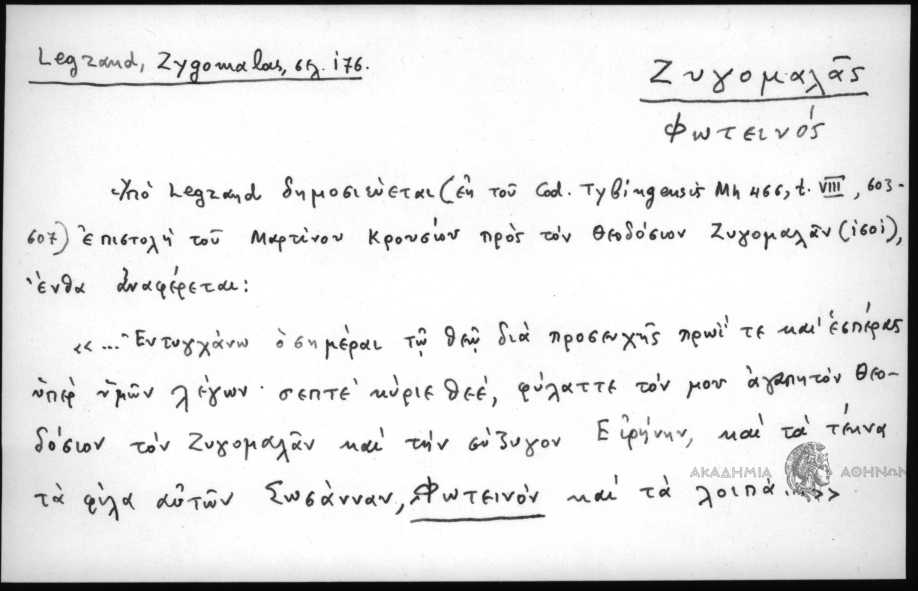 Legrand, Zygomalas, σελ. 176.
Ζυγομαλᾶς
Φωτεινός
Ὑπὸ Legrand δημοσιεύεται (ἐκ τοῦ Cod. Tybingensis Mh 466, t. VIII, 603-
607) ἐπιστολὴ τοῦ Μαρτίνου Κρουσίου πρὸς τὸν Θεοδόσιον Ζυγομαλᾶν (1501),
ἔνθα ἀναφέρεται:
«...Ἐντυγχάνω ὁσημέραι τῷ θεῷ διὰ προσευχῆς πρωΐ τε καὶ ἑσπέρας
ὑπὲρ ὑμῶν λέγων· σεπτὲ κύριε θεέ, φύλαττε τόν μου ἀγαπητὸν Θεο-
δόσιον τὸν Ζυγομαλᾶν καὶ τὴν σύζυγον Εἰρήνην, καὶ τὰ τέκνα
τὰ φίλα αὐτῶν Σωσάνναν, Φωτεινὸν καὶ τὰ λοιπά...»
ΑΚΑΔΗΜΙΑ ΑΘΗΝΩΝ